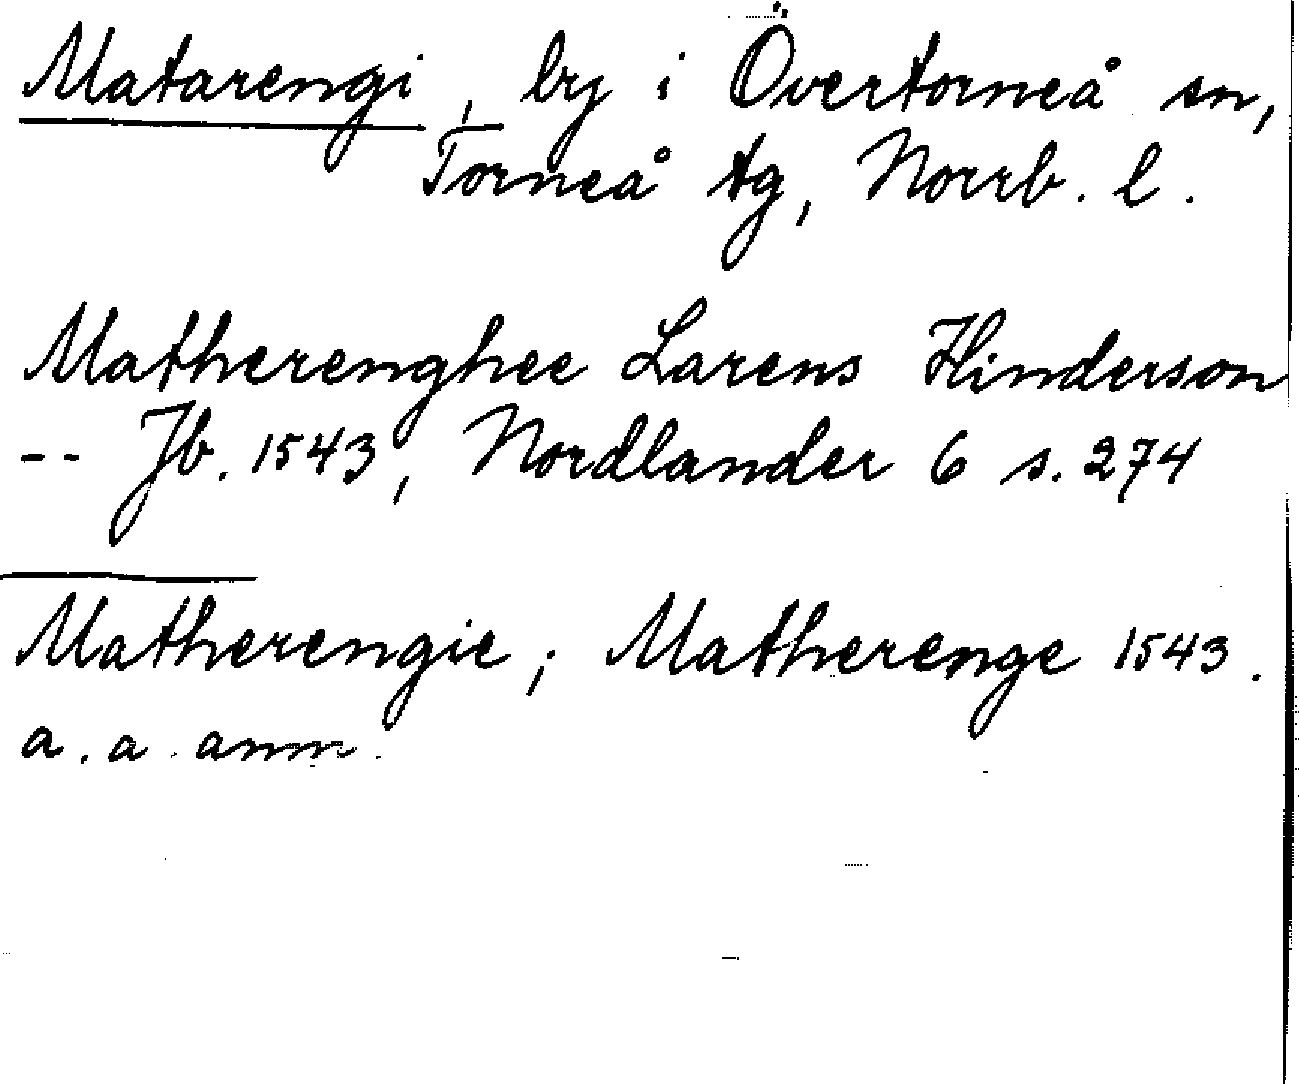 Matarengi, by i Övertorneå sn,
Torneå tg, Norrb. l.
Matherenghee Larens Hinderson
-- Jb. 1543, Nordlander 6 s. 274
Matherengie; Matherenge 1543.
a. a. anm.